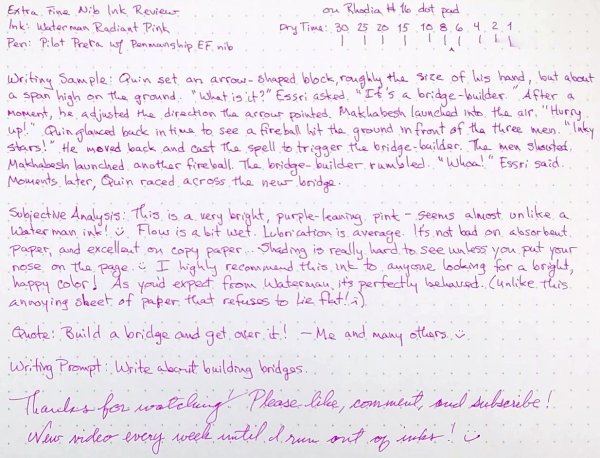 Extra Fine Nib Ink Review on Rhodia #16 dot pad
Ink: Waterman Radiant Pink Dry Time: 30 25 20 15 10 8 6 4 2 1
Pen: Pilot Prera w/ Penmanship EF nib
Writing Sample: Quin set an arrow-shaped block, roughly the size of his hand, but about
a span high on the ground. "What is it?" Essri asked. "It's a bridge-builder." After a
moment, he adjusted the direction the arrow pointed. Makhabesh launched into the air. "Hurry
up!" Quin glanced back in time to see a fireball hit the ground in front of the three men. "Inky
stars!" He moved back and cast the spell to trigger the bridge-builder. The men shouted.
Makhabesh launched another fireball. The bridge-builder rumbled. "Whoa!" Essri said.
Moments later, Quin raced across the new bridge.
Subjective Analysis: This is a very bright, purple-leaning pink - seems almost unlike a
Waterman ink! :) Flow is a bit wet. Lubrication is average. It's not bad on absorbent
paper, and excellent on copy paper... Shading is really hard to see unless you put your
nose on the page. :) I highly recommend this ink to anyone looking for a bright,
happy color! As you'd expect from Waterman, it's perfectly behaved. (Unlike this
annoying sheet of paper that refuses to lie flat! ;)
Quote: Build a bridge and get over it! - Me and many others :)
Writing Prompt: Write about building bridges.
Thanks for watching! Please like, comment, and subscribe!
New video every week until I run out of inks! :)